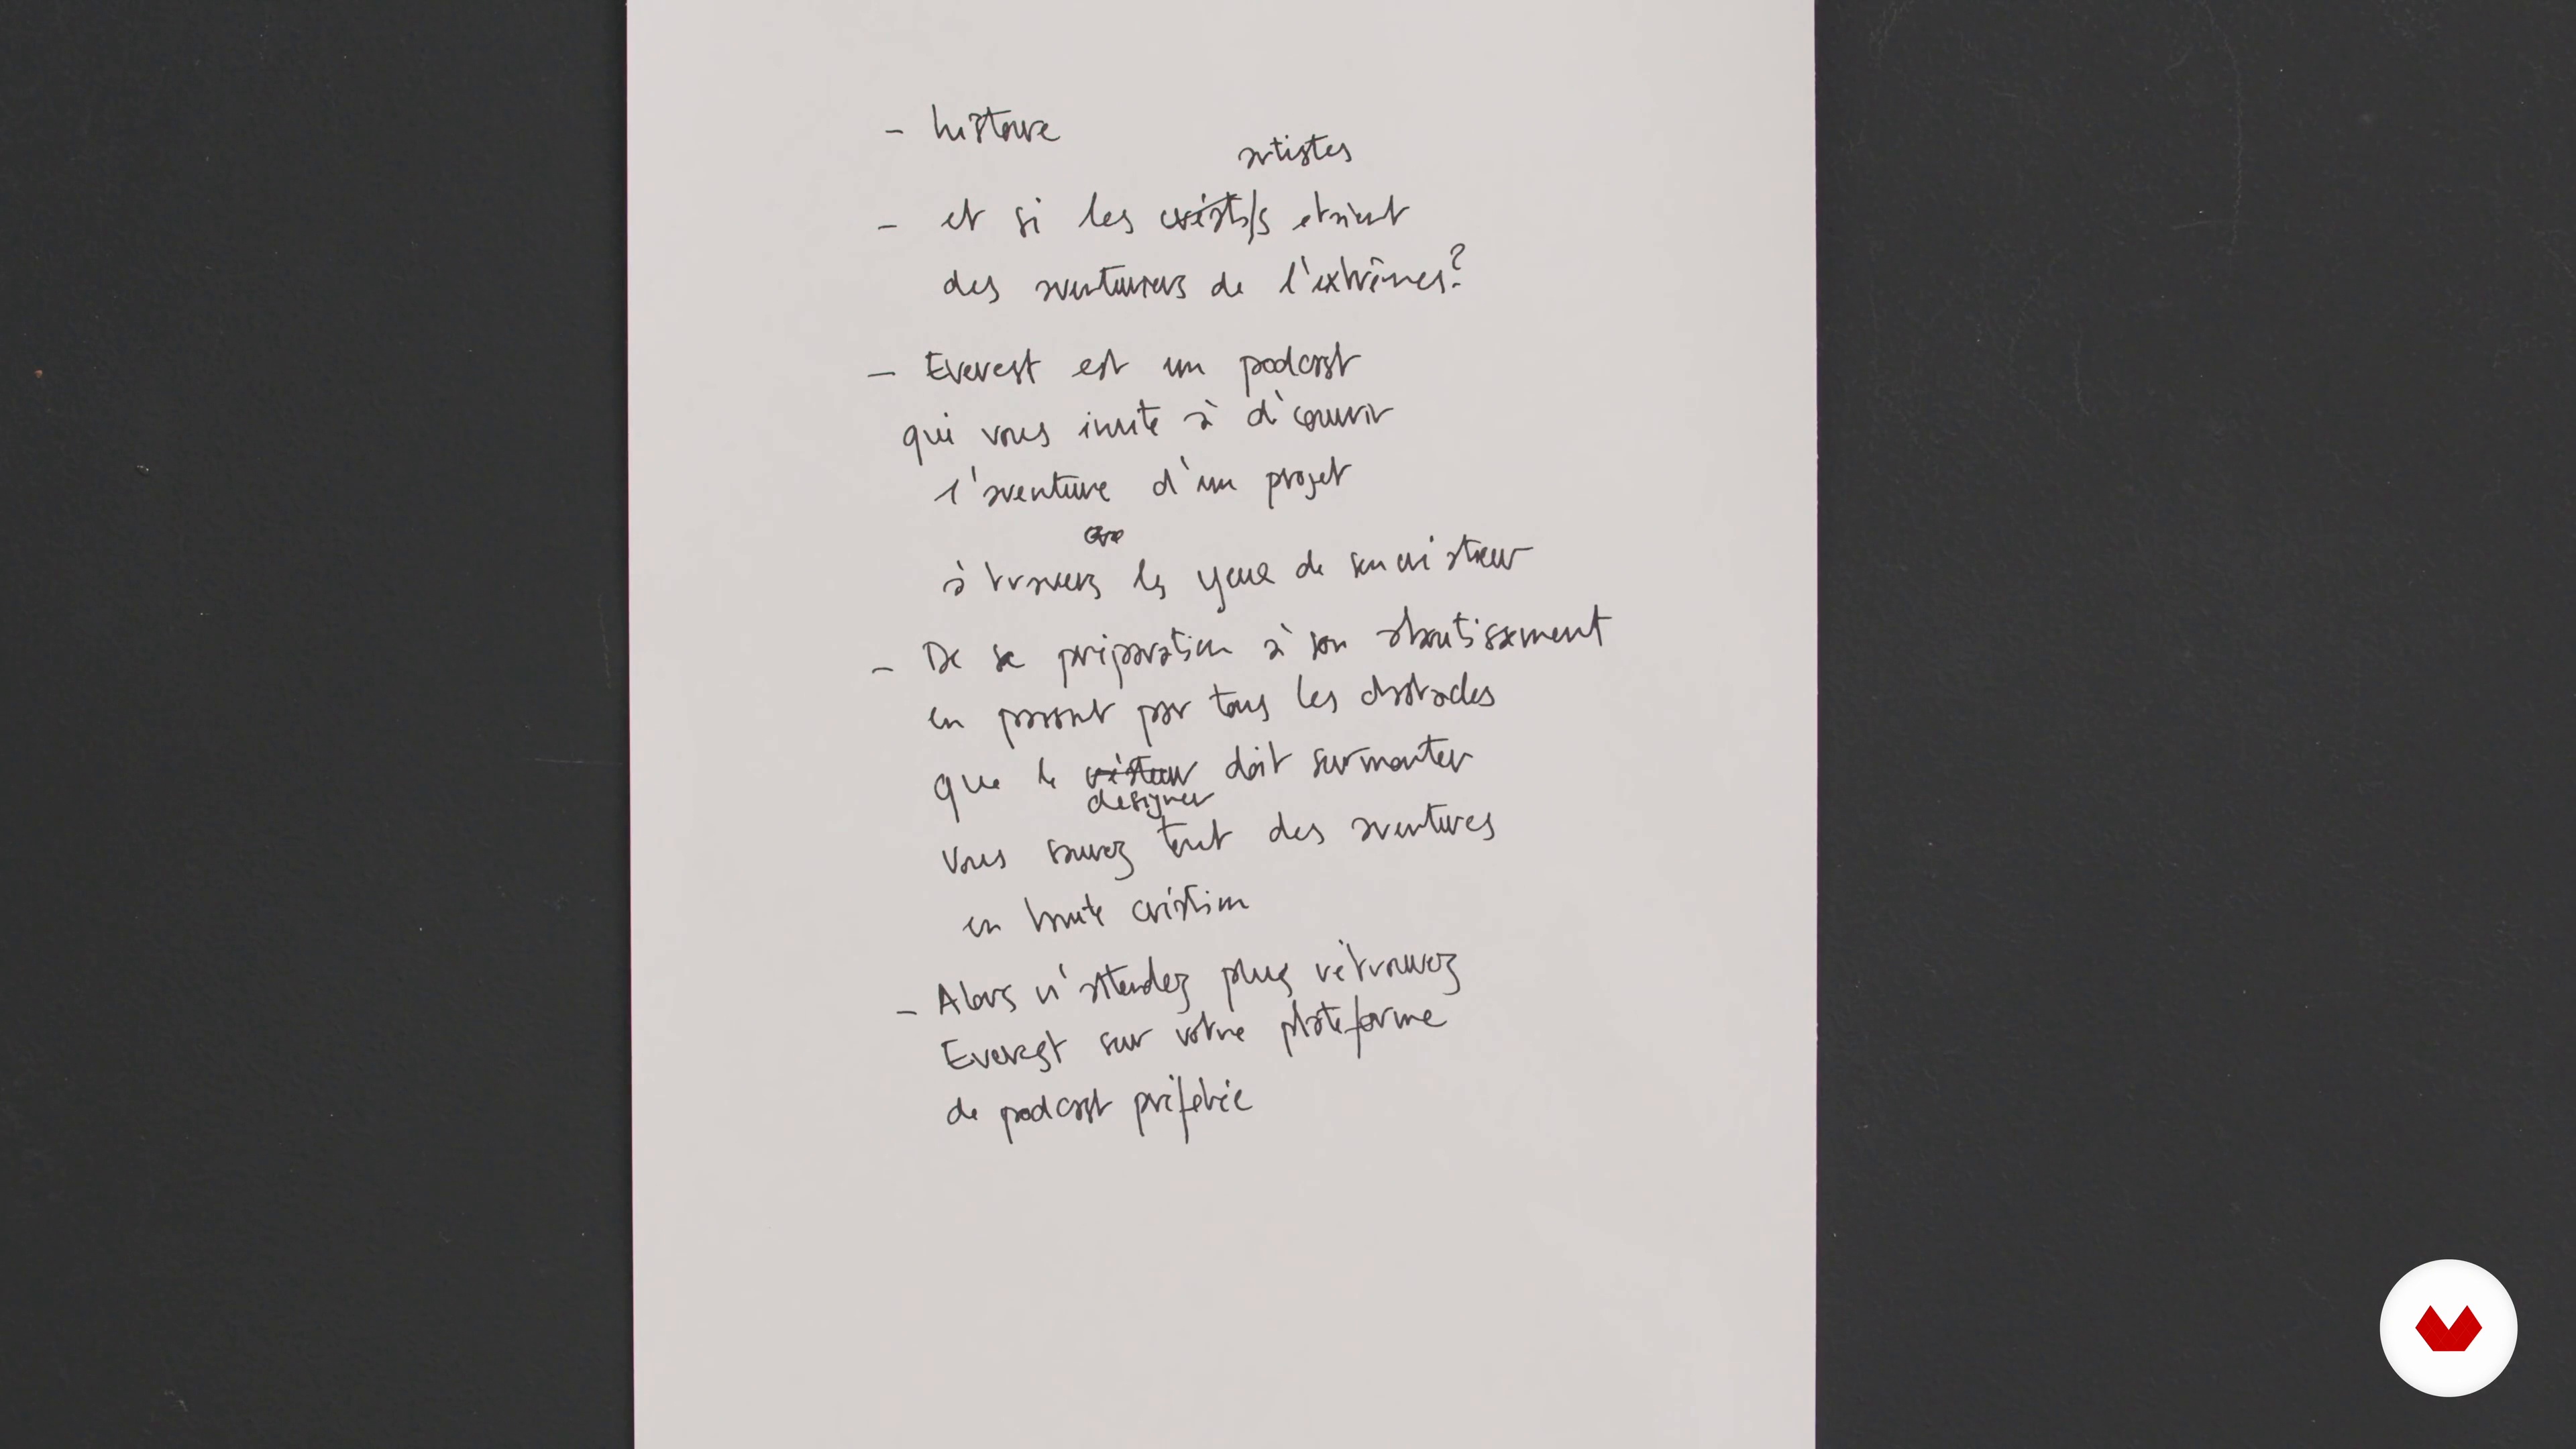 - histoire
artistes
- et si les créatifs etaient
des aventuriers de l'extrêmes?
- Everest est un podcast
qui vous invite à découvrir
l'aventure d'un projet
à travers les yeux de son créateur
- De sa préparation à son aboutissement
en passant par tous les obstacles
que le créateur doit surmonter
designer
vous saurez tout des aventures
en haute création
- Alors n'attendez plus rétrouvez
Everest sur votre plateforme
de podcast préférée